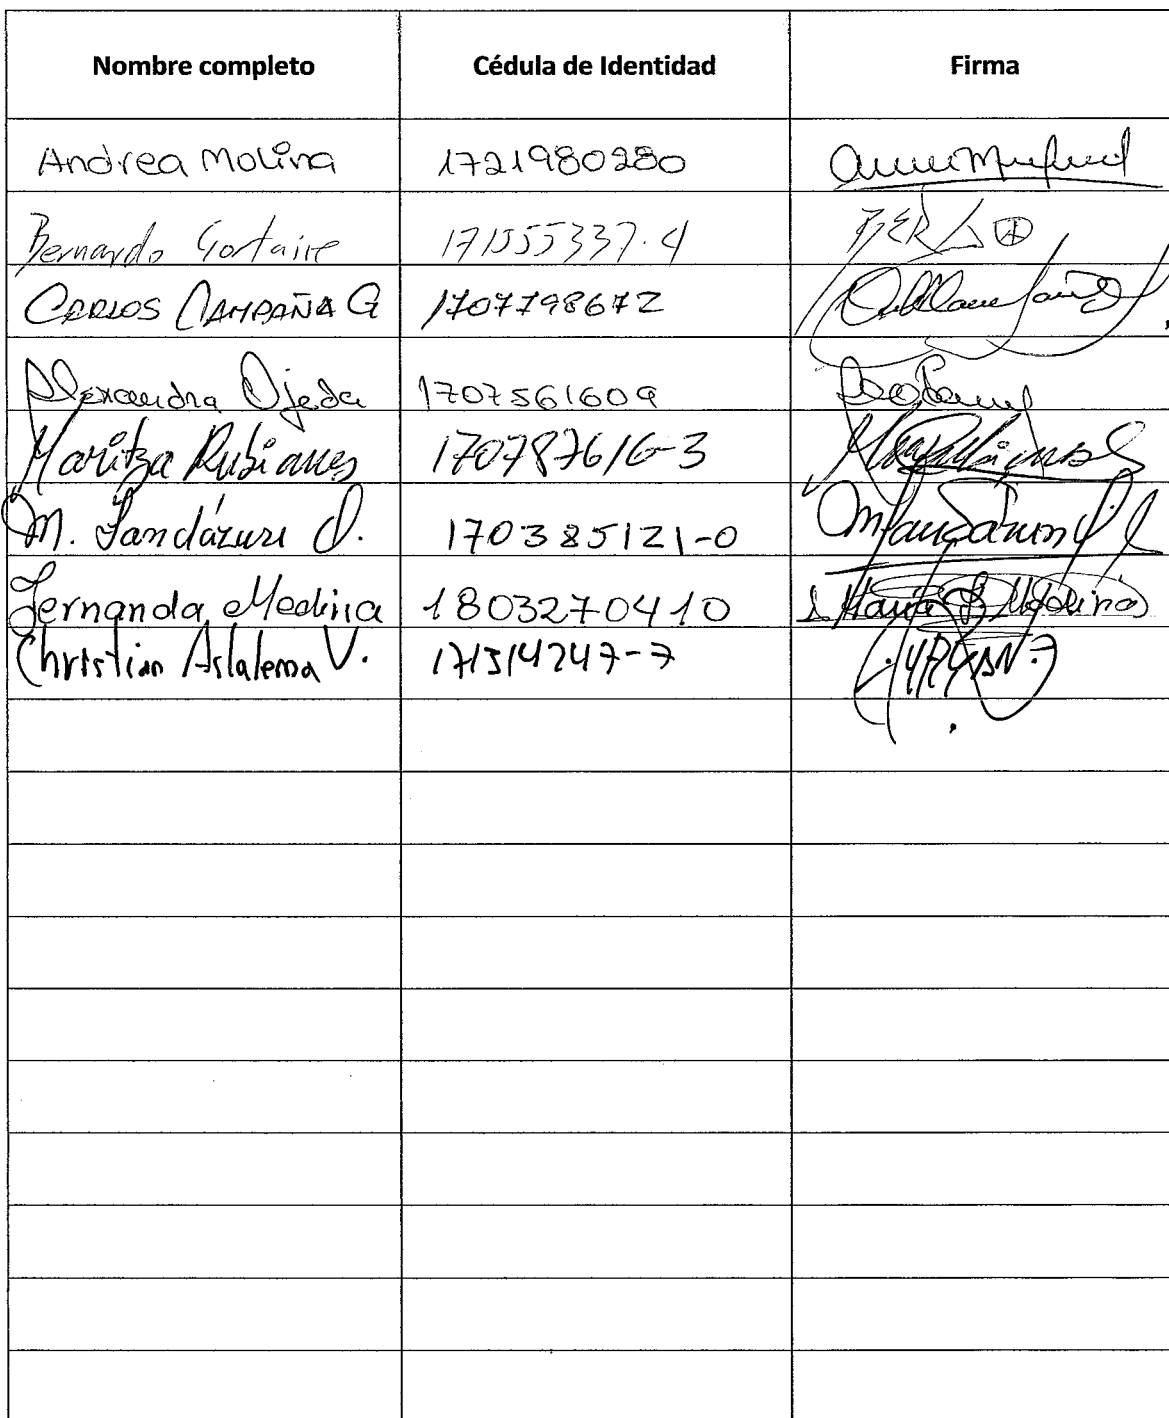 Nombre completo Cédula de Identidad Firma
Andrea Molina 1721980280
Bernardo Gortaire 171555337-4
CARLOS CAMPAÑA G 1707798672
Alexandra Ojeda 1707561609
Maritza Rubianes 170787616-3
M. Landázuri O. 170385121-0
Fernanda Medina 1803270410
Christian Aslalema V. 171314747-7